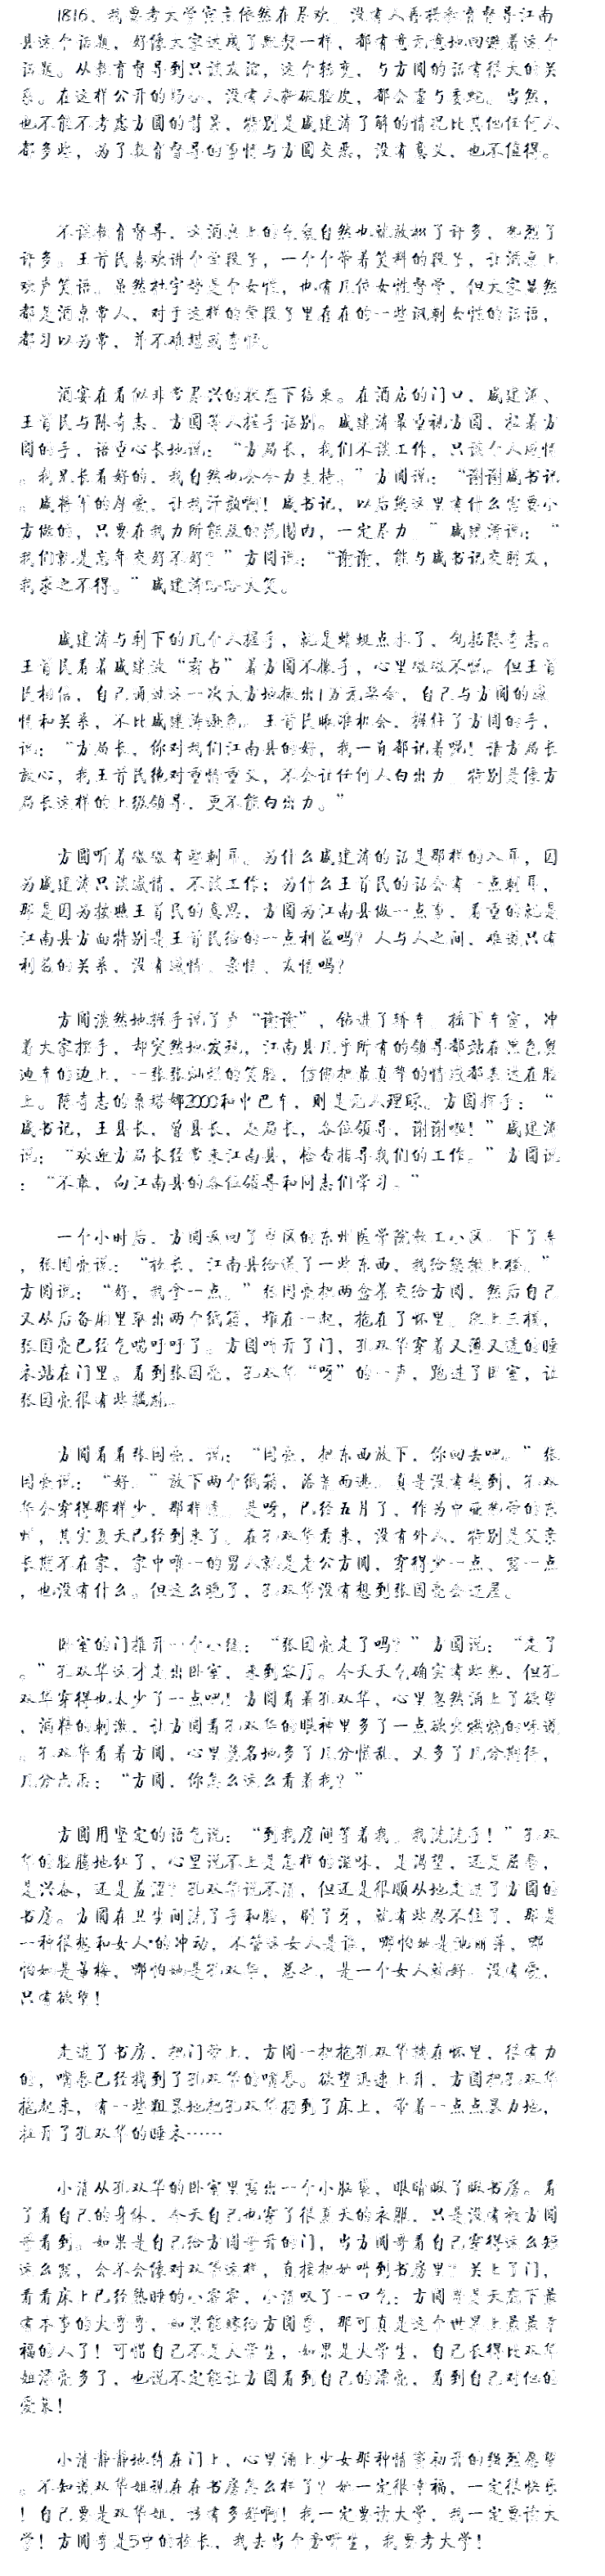 1816、我要考大学宾主依然在尽欢。没有人再提教育督导江南
县这个话题，好像大家达成了默契一样，都有意无意地回避着这个
话题。从教育督导到只谈友谊，这个转变，与方圆的话有很大的关
系。在这样公开的场合，没有人撕破脸皮，都会虚与委蛇。当然，
也不能不考虑方圆的背景，特别是戚建涛了解的情况比其他任何人
都多些，为了教育督导的事情与方圆交恶，没有意义，也不值得。
不谈教育督导，这酒桌上的气氛自然也就放松了许多，热烈了
许多。王首民喜欢讲个黄段子，一个个带着笑料的段子，让酒桌上
欢声笑语。虽然杜宇婷是个女性，也有几位女性督学，但大家显然
都是酒桌常人，对于这样的黄段子里存在的一些讽刺女性的话语，
都习以为常，并不难堪或李怪。
酒宴在看似非常尽兴的状态下结束。在酒店的门口，戚建涛、
王首民与陈奇志、方圆等人握手话别。戚建涛最重视方圆，拉着方
圆的手，语重心长地说：“方局长，我们不谈工作，只谈个人感情
。我累长看好的，我自然也会全力支持。”方圆说：“谢谢戚书记
。戚将军的厚爱，让我汗颜啊！戚书记，以后您这里有什么需要小
方做的，只要在我力所能及的范围内，一定尽力。”戚建涛说：“
我们就是忘年交好不好？”方圆说：“谢谢，能与戚书记交朋友，
我求之不得。”戚建涛哈哈大笑。
戚建涛与剩下的几个人握手，就是蜻蜓点水了，包括陈奇志。
王首民看着戚建涛“霸占”着方圆不撒手，心里微微不悦。但王首
民相信，自己通过这一次大方地拨出1万元奖金，自己与方圆的感
情和关系，不比戚建涛逊色。王首民瞅准机会，握住了方圆的手，
说：“方局长，你对我们江南县的好，我一直都记着呢！请方局长
放心，我王首民绝对重情重义，不会让任何人白出力，特别是像方
局长这样的上级领导，更不能白出力。”
方圆听着微微有些刺耳。为什么戚建涛的话是那样的入耳，因
为戚建涛只谈感情，不谈工作；为什么王首民的话会有一点刺耳，
那是因为按照王首民的意思，方圆为江南县做一点事，看重的就是
江南县方面特别是王首民给的一点利益吗？人与人之间，难道只有
利益的关系，没有感情、亲情、友情吗？
方圆淡然地握手说了声“谢谢”，钻进了轿车。摇下车窗，冲
着大家挥手，却突然地发现，江南县几乎所有的领导都站在黑色奥
迪车的边上，一张张灿烂的笑脸，仿佛把最真挚的情感都表达在脸
上。陈奇志的桑塔娜2000和中巴车，则是无人理睬。方圆挥手：“
戚书记，王县长，曾县长，赵局长，各位领导，谢谢啦！”戚建涛
说：“欢迎方局长经常来江南县，检查指导我们的工作。”方圆说
：“不敢，向江南县的各位领导和同志们学习。”
一个小时后，方圆返回了市区的东州医学院教工小区。下了车
，张国亮说：“校长，江南县给送了一些东西，我给您搬上楼。”
方圆说：“好，我拿一点。”张国亮把两盒茶交给方圆，然后自己
又从后备厢里拿出两个纸箱，堆在一起，抱在了怀里。爬上三楼，
张国亮已经气喘吁吁了。方圆叫开了门，孔双华穿着又薄又透的睡
衣站在门里。看到张国亮，孔双华“呀”的一声，跑进了卧室，让
张国亮很有些尴尬。
方圆看着张国亮，说：“国亮，把东西放下，你回去吧。”张
国亮说：“好。”放下两个纸箱，落荒而逃。真是没有想到，孔双
华会穿得那样少，那样透。是呀，已经五月了，作为中亚热带的东
州，其实夏天已经到来了。在孔双华看来，没有外人，特别是父亲
长期不在家，家中唯一的男人就是老公方圆，穿得少一点、露一点
，也没有什么。但这么晚了，孔双华没有想到张国亮会进屋。
卧室的门推开一个小缝：“张国亮走了吗？”方圆说：“走了
。”孔双华这才走出卧室，来到客厅。今天天气确实有些热，但孔
双华穿得也太少了一点吧！方圆看着孔双华，心里忽然涌上了欲望
，酒精的刺激，让方圆看孔双华的眼神里多了一点欲火燃烧的味道
。孔双华看着方圆，心里莫名地多了几分慌乱，又多了几分期待，
几分忐忑：“方圆，你怎么这么看着我？”
方圆用坚定的语气说：“到我房间等着我，我洗洗手！”孔双
华的脸腾地红了，心里说不上是怎样的滋味，是渴望，还是屈辱，
是兴奋，还是羞涩？孔双华说不清，但还是很顺从地走进了方圆的
书房。方圆在卫生间洗了手和脸，刷了牙，就有些忍不住了，那是
一种很想和女人*的冲动，不管这女人是谁，哪怕她是池丽萍，哪
怕她是董梅，哪怕她是孔双华，总之，是一个女人就好。没有爱，
只有欲望！
走进了书房，把门带上，方圆一把抱孔双华搂在怀里，很有力
的，嘴唇已经找到了孔双华的嘴唇。欲望迅速上升，方圆把孔双华
抱起来，有一些粗暴地把孔双华扔到了床上，带着一点点暴力地，
拉开了孔双华的睡衣……
小清从孔双华的卧室里露出一个小脑袋，眼睛瞅了瞅书房。看
了看自己的身体，今天自己也穿了很夏天的衣服，只是没有被方圆
哥看到。如果是自己给方圆哥开的门，当方圆哥看自己穿得这么短
这么露，会不会像对双华这样，直接把她叫到书房里？关上了门，
看看床上已经熟睡的小客客，小清叹了一口气：方圆哥是天底下最
有本事的大哥哥，如果能嫁给方圆哥，那可真是这个世界上最最幸
福的人了！可惜自己不是大学生，如果是大学生，自己长得比双华
姐漂亮多了，也说不定能让方圆看到自己的漂亮，看到自己对他的
爱慕！
小清静静地倚在门上，心里涌上少女那种情窦初开的强烈愿望
。不知道双华姐现在在书房怎么样了？她一定很幸福，一定很快乐
！自己要是双华姐，该有多好啊！我一定要读大学，我一定要读大
学！方圆哥是5中的校长，我去当个旁听生，我要考大学！